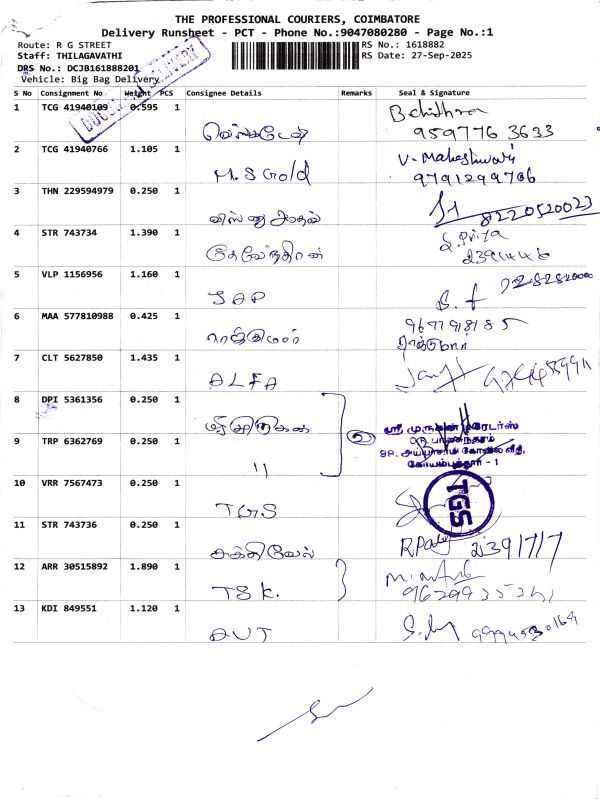 THE PROFESSIONAL COURIERS, COIMBATORE
Delivery Runsheet - PCT - Phone No.:9047080280 - Page No.:1
Route: R G STREET
Staff: THILAGAVATHI
DRS No.: DCJB161888201
Vehicle: Big Bag Delivery
RS No.: 1618882
RS Date: 27-Sep-2025
S No Consignment No Weight PCS Consignee Details Remarks Seal & Signature
1 TCG 41940109 0.595 1
959776 3633
2 TCG 41940766 1.105 1 M.S Gold V. Maheshwari
9791299706
3 THN 229594979 0.250 1 8220520023
4 STR 743734 1.390 1 தேவேந்திரன் S.Priya
2391446
5 VLP 1156956 1.160 1 JAP
6 MAA 577810988 0.425 1 ராஜ்குமார் 9677918185
ராஜ்குமார்
7 CLT 5627850 1.435 1 ALFA
8 DPI 5361356 0.250 1
9 TRP 6362769 0.250 1 " ②
ஸ்ரீ முருகன் டிரேடர்ஸ்
99, அய்யாசாமி கோவில் வீதி,
கோயம்புத்தூர் - 1
10 VRR 7567473 0.250 1 TGS
TGS
11 STR 743736 0.250 1 சக்திவேல் 2391717
12 ARR 30515892 1.890 1 TSK.
13 KDI 849551 1.120 1 AVT